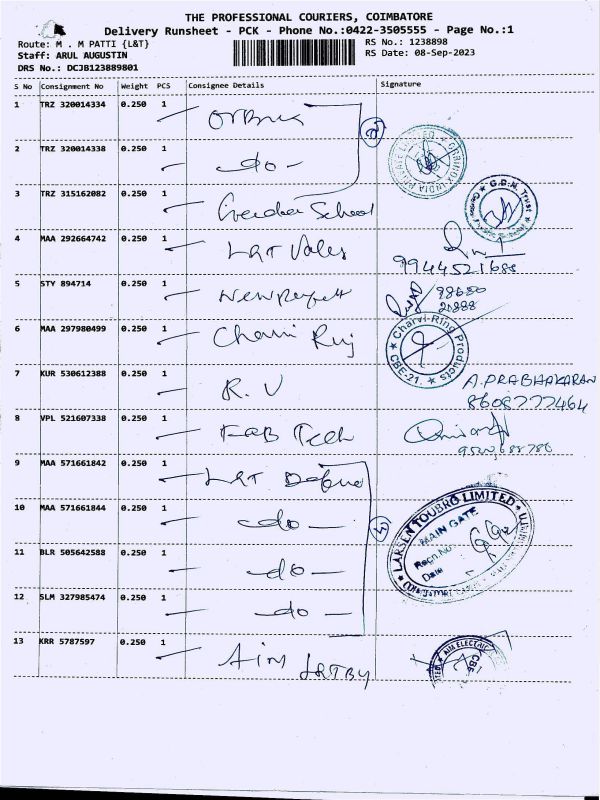 THE PROFESSIONAL COURIERS, COIMBATORE
Delivery Runsheet - PCK - Phone No.:0422-3505555 - Page No.:1
Route: M . M PATTI {L&T}
Staff: ARUL AUGUSTIN
DRS No.: DCJB123889801
RS No.: 1238898
RS Date: 08-Sep-2023
S No Consignment No Weight PCS Consignee Details Signature
1 TRZ 320014334 0.250 1
2 TRZ 320014338 0.250 1 - do -
3 TRZ 315162082 0.250 1 School
G.D.M. Trust
4 MAA 292664742 0.250 1 L&T Valves
9944521688
5 STY 894714 0.250 1
6 MAA 297980499 0.250 1
Charvi-Ring Products
CBE-21.
7 KUR 530612388 0.250 1 R. V
A. PRABHAKARAN
8608777464
8 VPL 521607338 0.250 1 Fab Tech
9 MAA 571661842 0.250 1 L&T
10 MAA 571661844 0.250 1 - do -
LARSEN TOUBRO LIMITED
MAIN GATE
Regn.No
Date
11 BLR 505642588 0.250 1 - do -
12 SLM 327985474 0.250 1 - do -
13 KRR 5787597 0.250 1 Aim
AIM ELECTRIC
L&T By